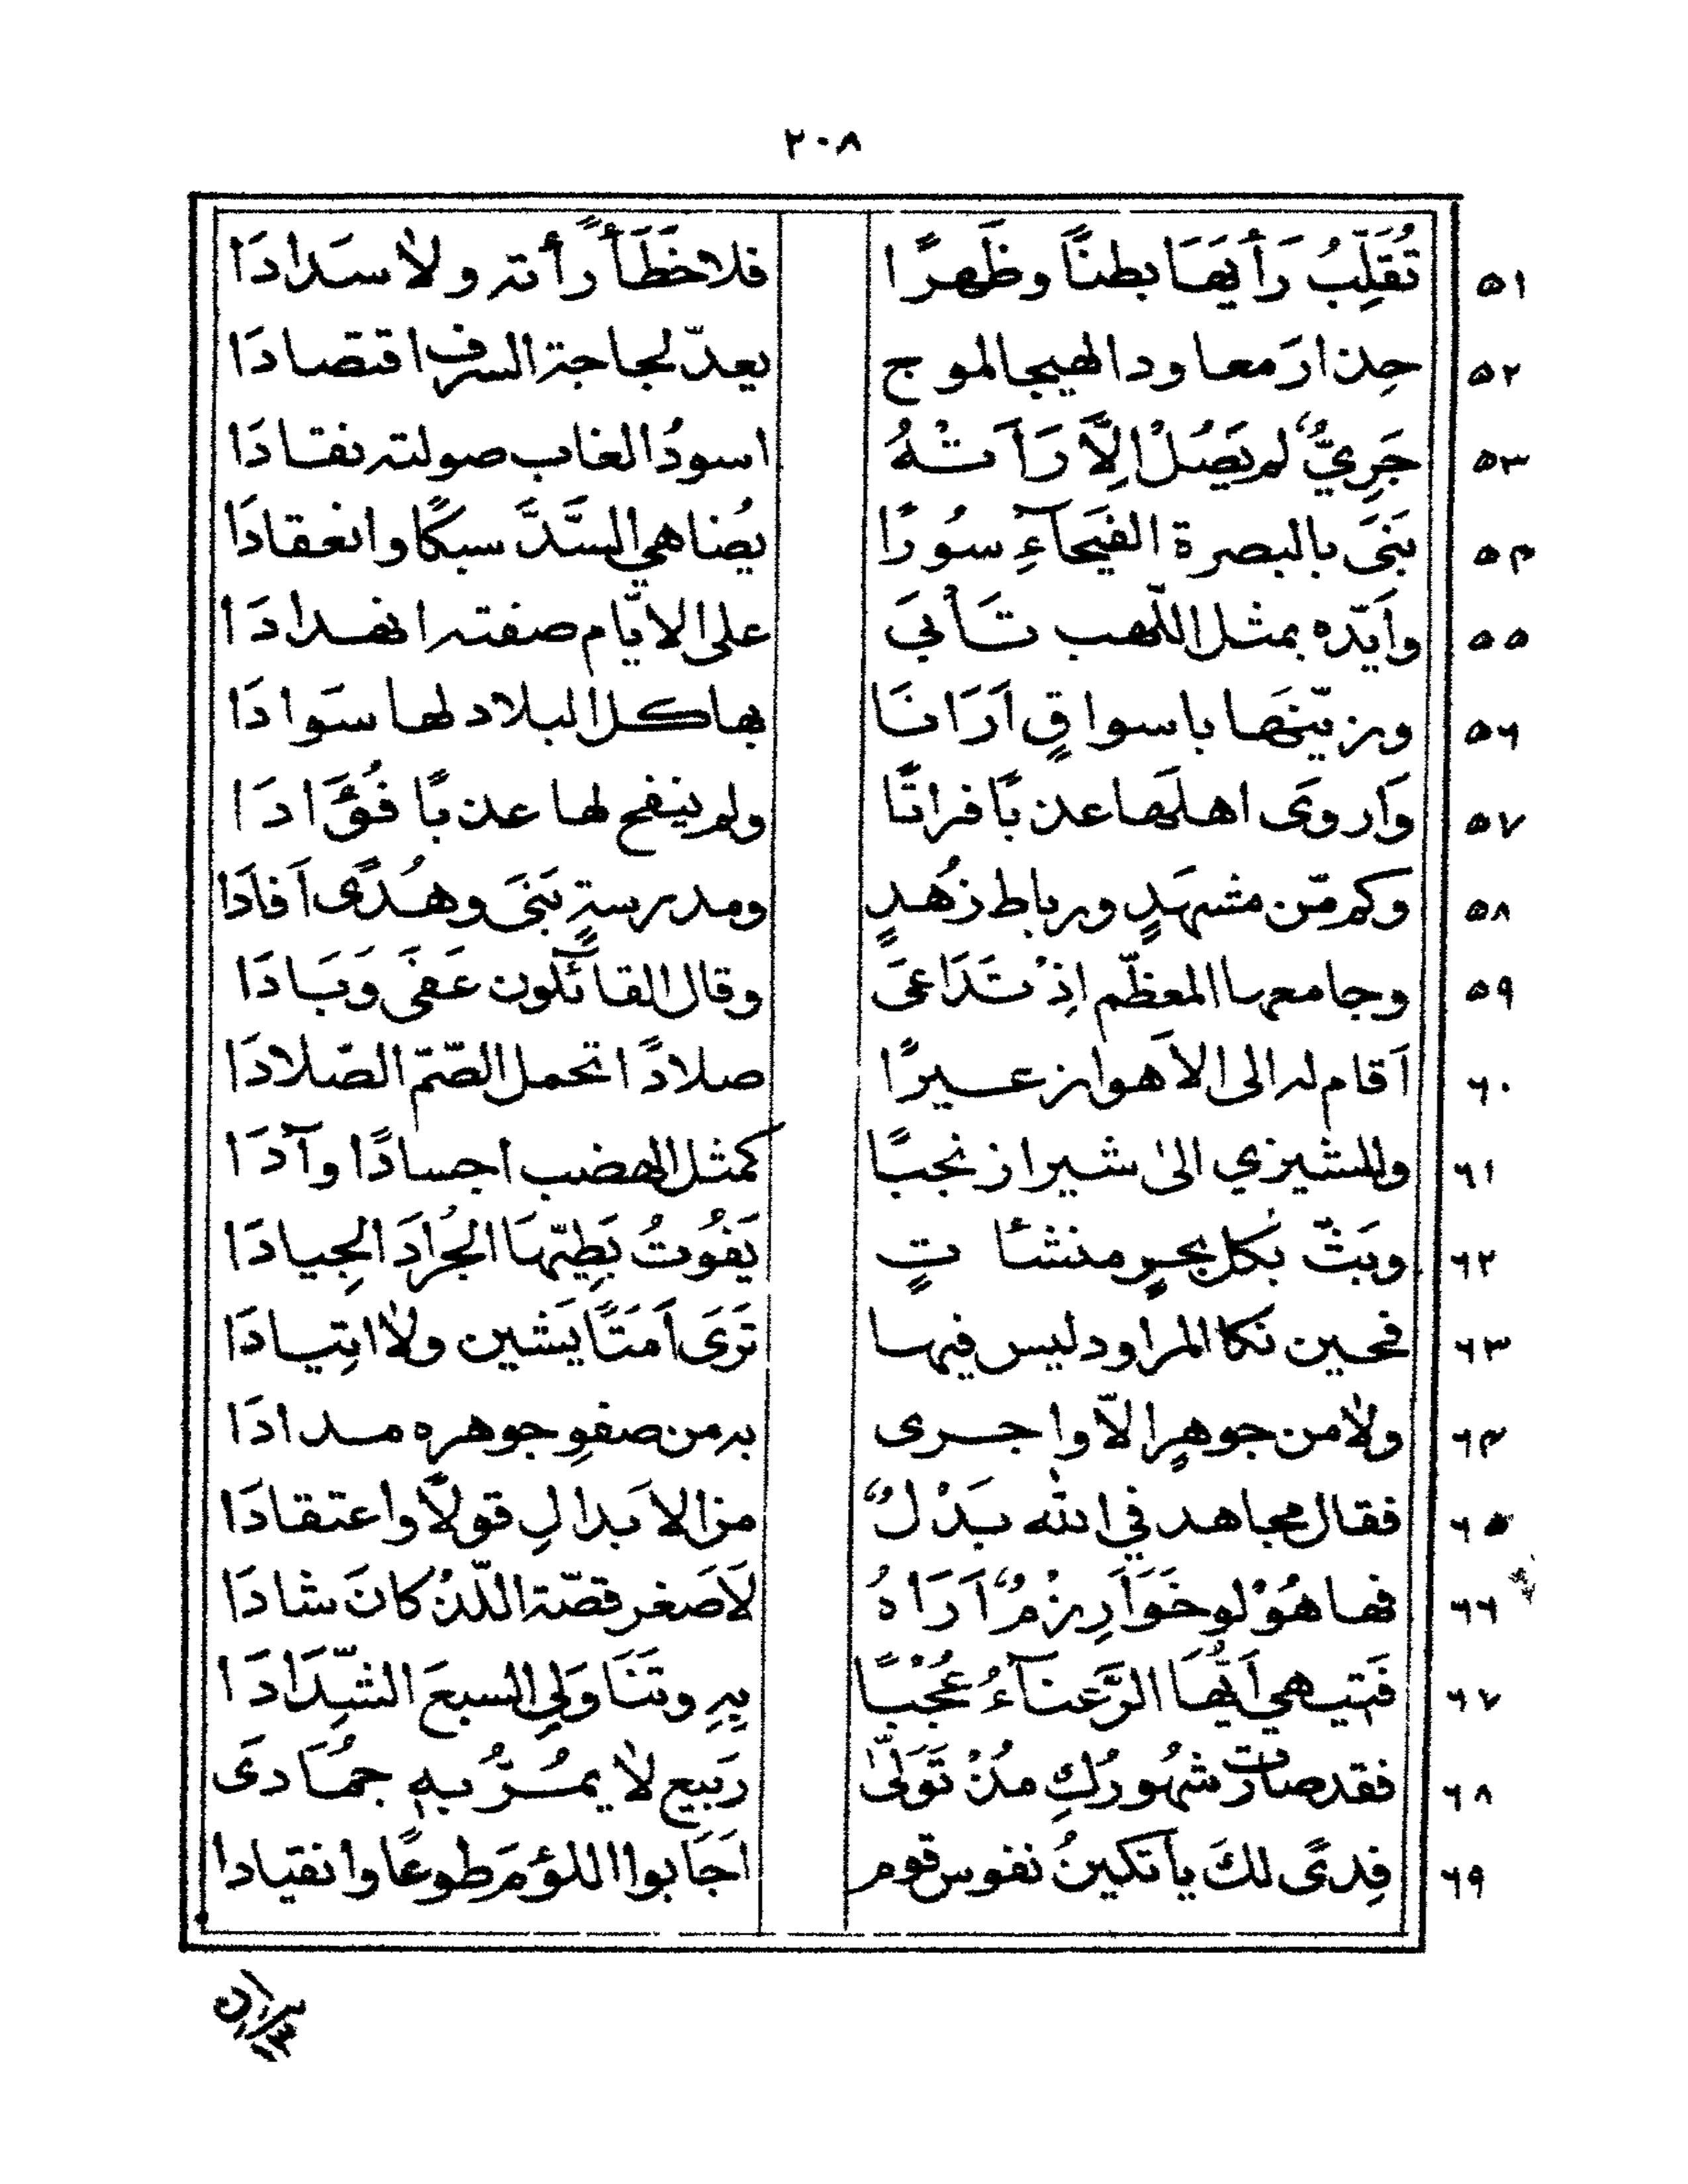 ٢٠٨
٥١ تُقَلِّبُ رَأْيَهَا بطنًا وظَهرًا فلا خَطَأً رأته ولا سَدادَا
٥٢ حِذارَ معاود الهيجا لموج يعدّ لجاجة السرف اقتصادَا
٥٣ جَرِيٌّ لم يَصُلْ اِلَّا رَأَتْهُ اسودُ الغاب صولته نقادَا
٥٤ بَنَى بالبصرة الفَيحآءِ سُورًا يُضاهي السَّدَّ سبكًا وانعقادَا
٥٥ وأيّده بمثل اللّهب تَأْبَى على الايّام صفته انهدادَا
٥٦ وزيّنهَا باسواقٍ اَرَانَا بها كل البلاد لها سَوادَا
٥٧ وَاروَى اهلَها عذبًا فراتًا ولم ينفح لها عذبًا فُؤَادَا
٥٨ وكم مّن مشهَدٍ ورباط زُهدٍ ومدرسةٍ بَنَى وهُدًى اَفادَا
٥٩ وجامعها المعظّم اِذْ تَدَاعَى وقال القائلون عَفَى وَبَادَا
٦٠ اَقام له الى الاَهواز عيرًا صلادًا تحمل الصّمّ الصّلادَا
٦١ وللشيزي الى شيراز نجبًا كمثل الهضب اجسادًا وآدَا
٦٢ وبَثّ بكل بحرٍ منشئاتٍ يَفُوتُ بَطِيّهَا الجُرادَ الجِيادَا
٦٣ فحين نكا المراود ليس فيها تَرَى اَمَتًا يَشين ولا انتِيادَا
٦٤ ولا من جوهرٍ الاّ واجرى به من صفوِ جوهره مدادَا
٦٥ فقال مجاهد في الله بَدْلٌ من الابدالِ قولًا واعتقادَا
٦٦ فها هُوْ لو خَوَارِزْمٌ اَرَاهُ لَاَصغر قصّة اللّذْ كانَ شادَا
٦٧ فَتيهي اَيُّهَا الرَّعنآءُ عُجْبًا بِهِ وتَنَاوَلِي السبعَ الشِّدَادَا
٦٨ فقد صارت شهُورُكِ مُذْ تَوَلّى رَبيع لا يمُرُّ بهِ جمُادَى
٦٩ فِدىً لكَ ياتكينُ نفوس قوم اَجَابوا اللؤمَ طوعًا وانقيادا